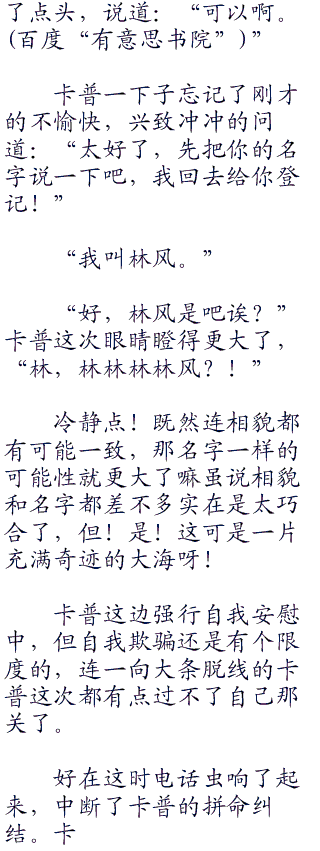 了点头，说道：“可以啊。
(百度“有意思书院”)”
卡普一下子忘记了刚才
的不愉快，兴致冲冲的问
道：“太好了，先把你的名
字说一下吧，我回去给你登
记！”
“我叫林风。”
“好，林风是吧诶？”
卡普这次眼睛瞪得更大了，
“林，林林林林风？！”
冷静点！既然连相貌都
有可能一致，那名字一样的
可能性就更大了嘛虽说相貌
和名字都差不多实在是太巧
合了，但！是！这可是一片
充满奇迹的大海呀！
卡普这边强行自我安慰
中，但自我欺骗还是有个限
度的，连一向大条脱线的卡
普这次都有点过不了自己那
关了。
好在这时电话虫响了起
来，中断了卡普的拼命纠
结。卡